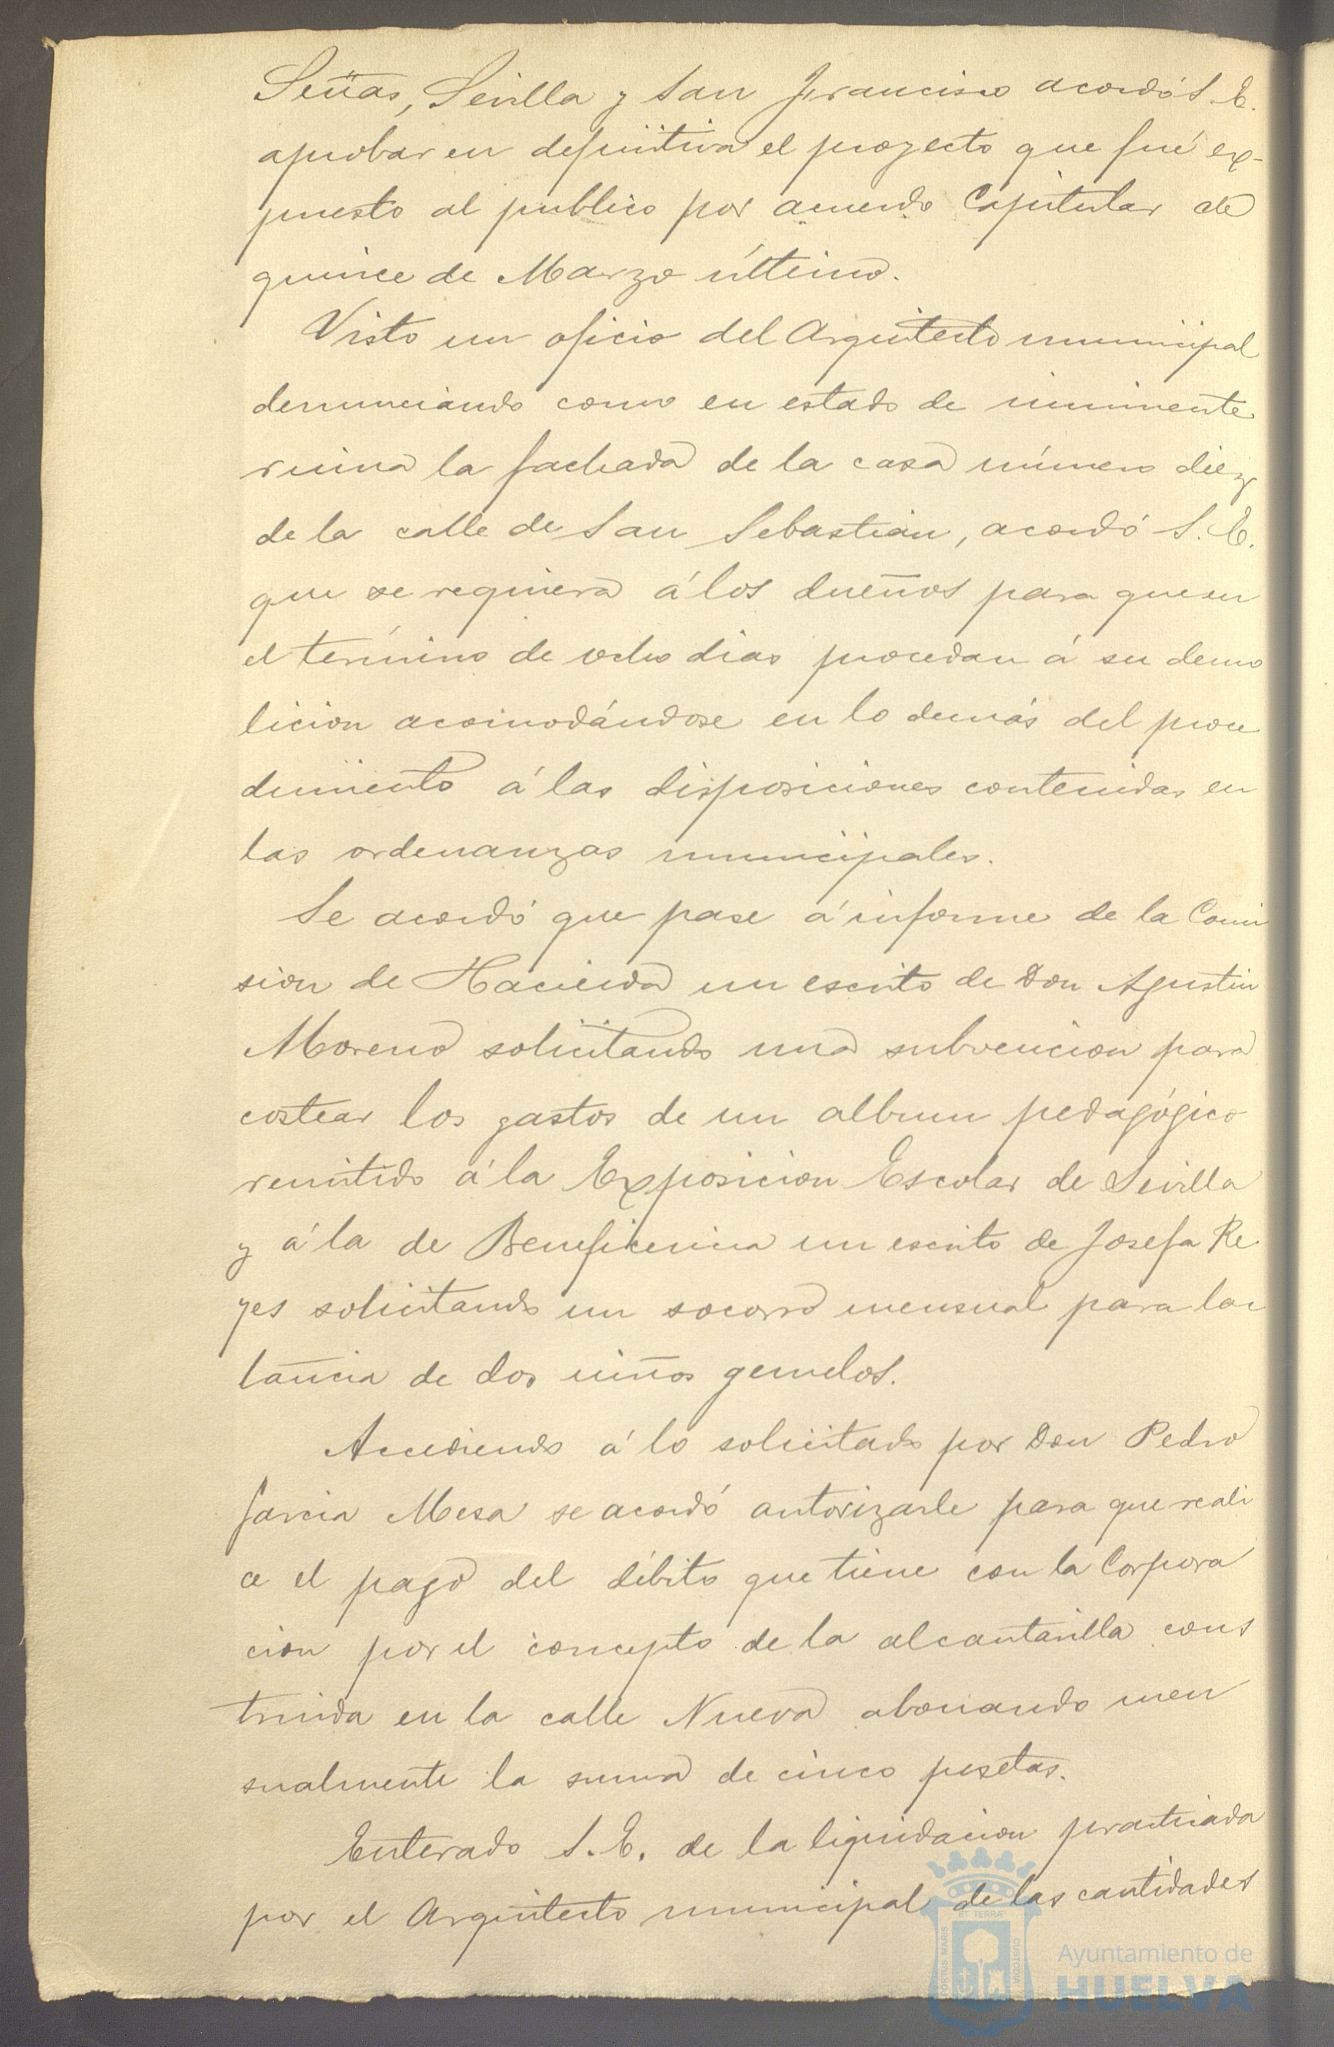 Señas, Sevilla y San Francisco acordó S. E.
aprobar en definitiva el proyecto que fué ex-
puesto al publico por acuerdo Capitular de
quince de Marzo último.
Visto un oficio del Arquitecto municipal
denunciando como en estado de inminente
ruina la fachada de la casa número diez
de la calle de San Sebastián, acordó S. E.
que se requiera á los dueños para que en
el término de ocho dias procedan á su demo
licion acomodándose en lo demás del proce
dimiento á las disposiciones contenidas en
las ordenanzas municipales.
Se acordó que pase á informe de la Comi
sion de Hacienda un escrito de Don Agustin
Moreno solicitando una subvencion para
costear los gastos de un album pedagógico
remitido á la Exposicion Escolar de Sevilla
y á la de Beneficencia un escrito de Josefa Re
yes solicitando un socorro mensual para lac
tancia de dos niños gemelos.
Accediendo á lo solicitado por Don Pedro
Garcia Mesa se acordó autorizarle para que reali
ce el pago del débito que tiene con la Corpora
cion por el concepto de la alcantarilla cons
truida en la calle Nueva abonando men
sualmente la suma de cinco pesetas.
Enterado S. E. de la liquidacion practicada
por el Arquitecto municipal de las cantidades
Ayuntamiento de
HUELVA